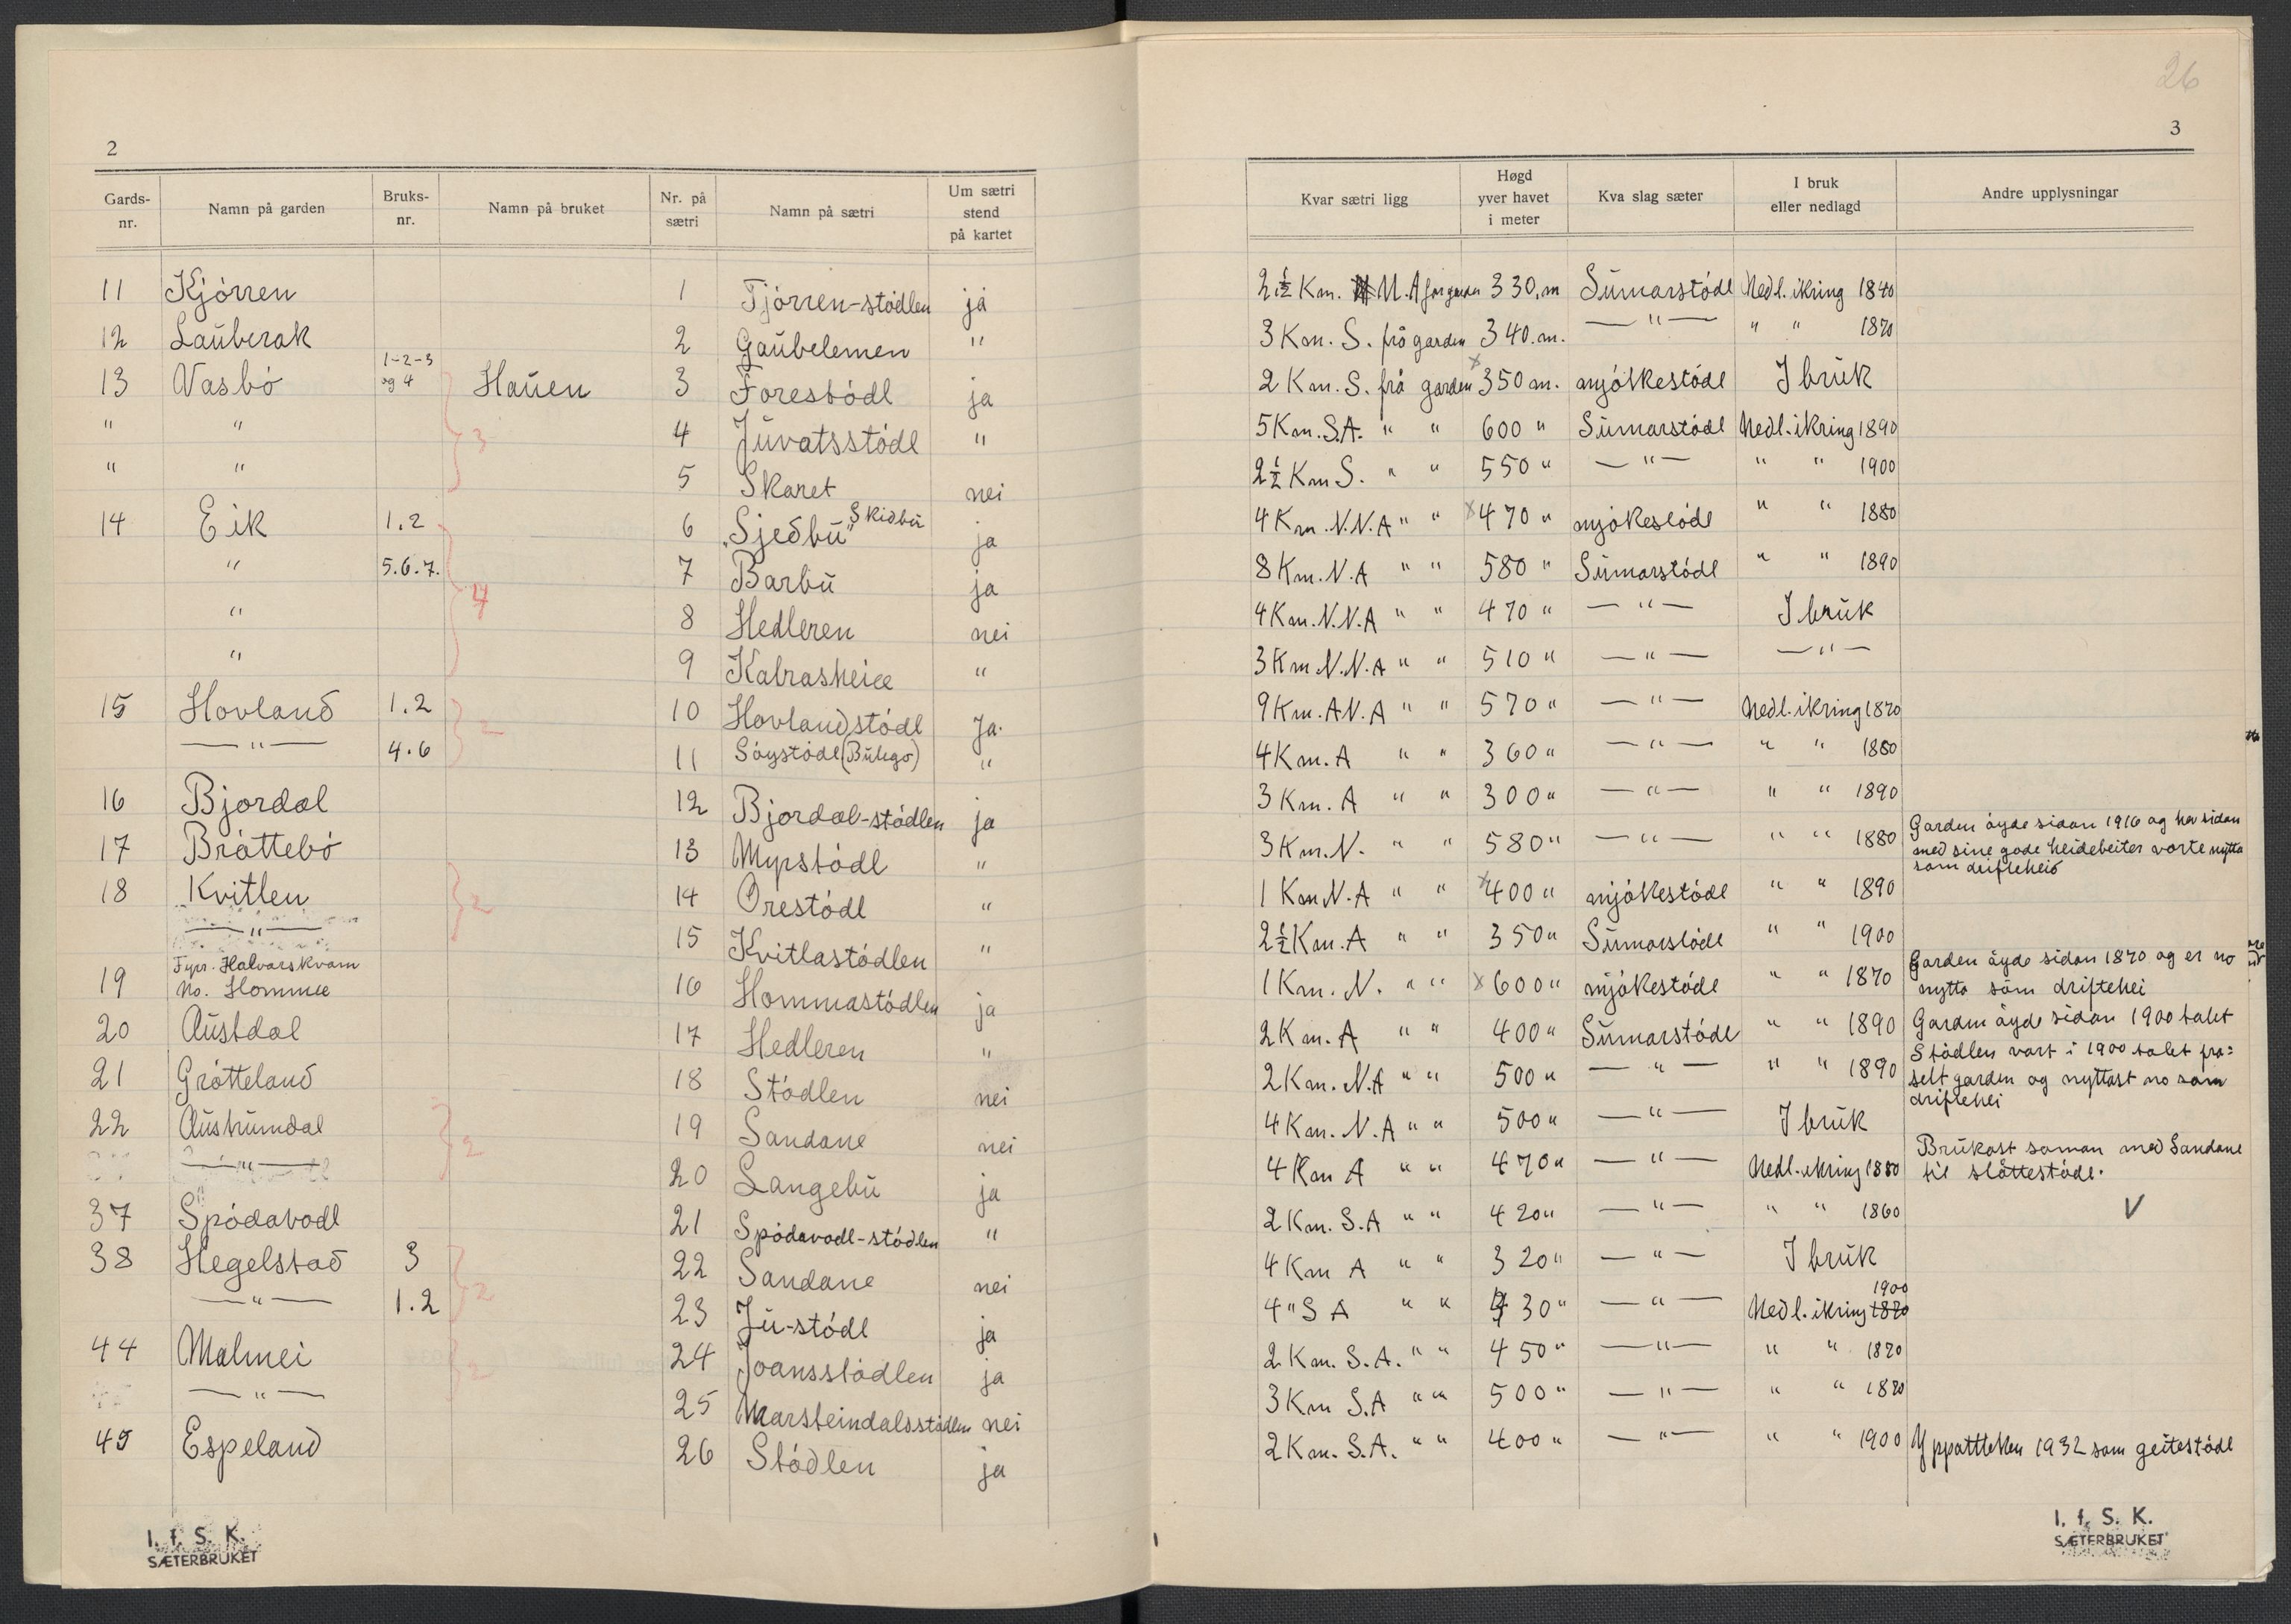 26
2
3
Gards-nr. Namn på garden Bruks-nr. Namn på bruket Nr. på sætri Namn på sætri Um sætri stend på kartet Kvar sætri ligg Høgd yver havet i meter Kva slag sæter I bruk eller nedlagd Andre upplysningar
11 Kjörren 1 Tjörren-stödlen ja 2½ Km. N.A frå garden 330.m Sumarstödl Nedl. ikring 1840
12 Lauberak 2 Gaubelemen " 3 Km. S. frå garden 340.m. — " — " " 1870
13 Vasbö 1-2-3 og 4 Hauen 3 Forestödl ja 2 Km. S. frå garden x 350 m. mjölkestödl I bruk
" " 3 4 Juvatsstödl " 5 Km. S.A. " " 600 " Sumarstödl Nedl. ikring 1890
" " 5 Skaret nei 2½ Km S. " " 550 " — " — " " 1900
14 Eik 1.2 6 "Sjedbu" Skidbu ja 4 Km. N.N.A " " x 470 " mjökestödl " " 1880
" 5.6.7. 4 7 Barbu ja 8 Km. N.A " " 580 " Sumarstödl " " 1890
" 8 Hedleren nei 4 Km. N.N.A " " 470 " — " — I bruk
" 9 Kalrasheiæ " 3 Km N.N.A " " 510 " — " — — " —
15 Hovland 1.2 2 10 Hovlandstödl Ja. 9 Km. A.N.A " " 570 " — " — Nedl. ikring 1870
— " — 4.6 11 Söystödl (Bulego) " 4 Km. A " " 360 " — " — " " 1880
16 Bjordal 12 Bjordal-stödlen ja 3 Km. A " " 300 " — " — " " 1890
17 Bråttebö 13 Myrstödl " 3 Km. N. " " 580 " — " — " " 1880 Garden öyde sidan 1916 og hev sidan
med sine gode heidebeiter vorte nytta
som drifteheid
18 Kvitlen 2 14 Orestödl " 1 Km N.A " " x 400 " mjökestödl " " 1890
— " — 15 Kvitlastödlen " 2½ Km. A " " 350 " Sumarstödl " " 1900
Fyrr. Halvarskvam
19 No. Hommæ 16 Hommastödlen ja 1 Km. N. " " x 600 " mjökestödl " " 1870 Garden öyde sidan 1870 og er no
nytta som driftehei
20 Austdal 17 Hedleren " 2 Km. A " " 400 " Sumarstödl " " 1890 Garden öyde sidan 1900 talet
21 Grötteland 18 Stödlen nei 2 Km. N.A " " 500 " — " — " " 1890 Stödlen vart i 1900 talet fra=
selt garden og nyttast no som
driftehei
22 Austrumdal 2 19 Sandane nei 4 Km. N.A " " 500 " — " — I bruk
— " — 20 Langebu ja 4 Km A " " 470 " — " — Nedl. ikring 1880 Brukast saman med Sandane
til slåttestödl.
37 Spödavodl 21 Spödavodl-stödlen " 2 Km. S.A " " 420 " — " — " " 1860 V
38 Hegelstad 3 2 22 Sandane nei 4 Km A " " 320 " — " — I bruk
— " — 1.2 23 Ju-stödl ja 4 " S A " " 430 " — " — Nedl. ikring 1870 1900
44 Malmei 2 24 Joansstödlen ja 2 Km. S.A. " " 450 " — " — " " 1870
— " — 25 Marsteindalsstødlen nei 3 Km S.A " " 500 " — " — " " 1870
45 Espeland 26 Stödlen ja 2 Km. S.A. " " 400 " — " — " " 1900 Yppatteken 1932 som geitestödl
I. f. S. K.
SÆTERBRUKET
I. f. S. K.
SÆTERBRUKET